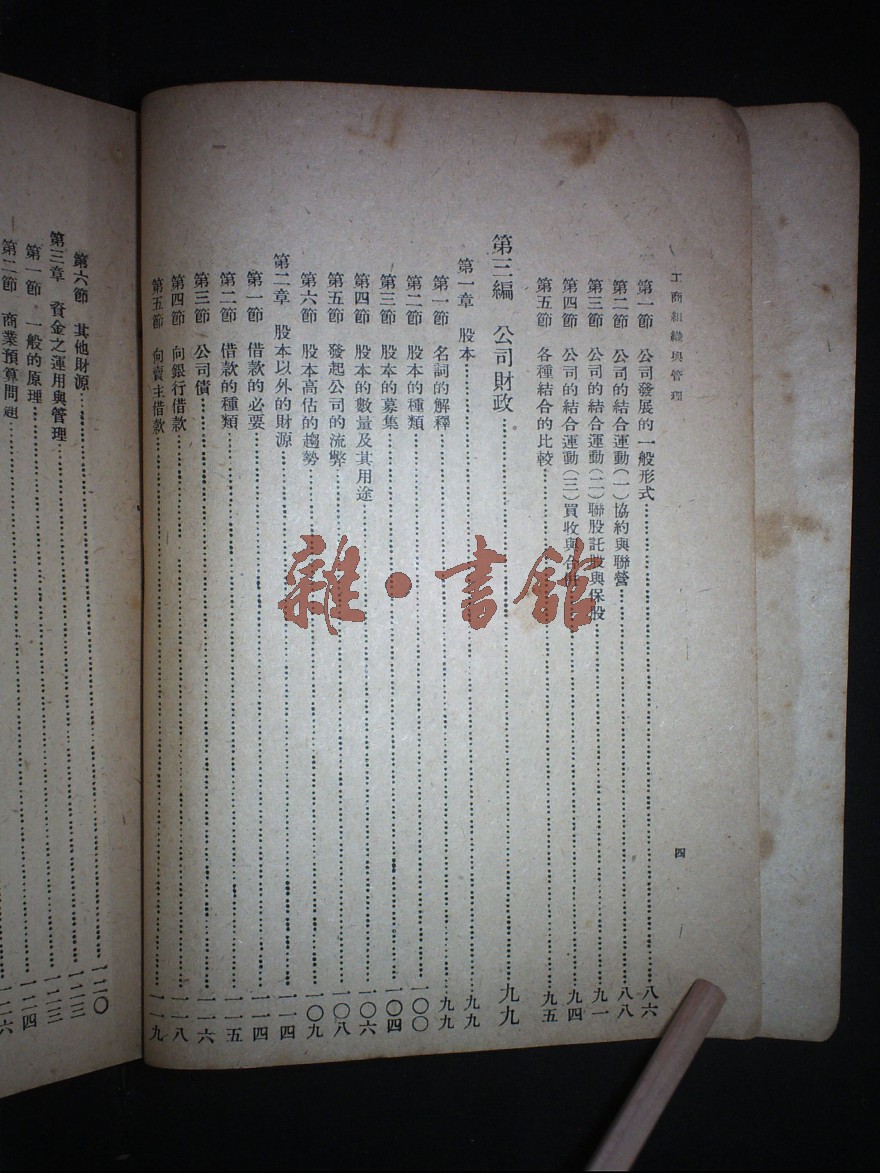 工商組織與管理
四
第一節 公司發展的一般形式……八六
第二節 公司的結合運動(一)協約與聯營……八八
第三節 公司的結合運動(二)聯股託股與保股……九一
第四節 公司的結合運動(三)買收與合併……九四
第五節 各種結合的比較……九五
第三編 公司財政……九九
第一章 股本……九九
第一節 名詞的解釋……九九
第二節 股本的種類……一〇〇
第三節 股本的募集……一〇四
第四節 股本的數量及其用途……一〇六
第五節 發起公司的流弊……一〇八
第六節 股本高估的趨勢……一〇九
第二章 股本以外的財源……一一四
第一節 借款的必要……一一四
第二節 借款的種類……一一五
第三節 公司債……一一六
第四節 向銀行借款……一一八
第五節 向賣主借款……一一九
第六節 其他財源……一二〇
第三章 資金之運用與管理……一二三
第一節 一般的原理……一二四
第二節 商業預算問題……一二六
雜·書館